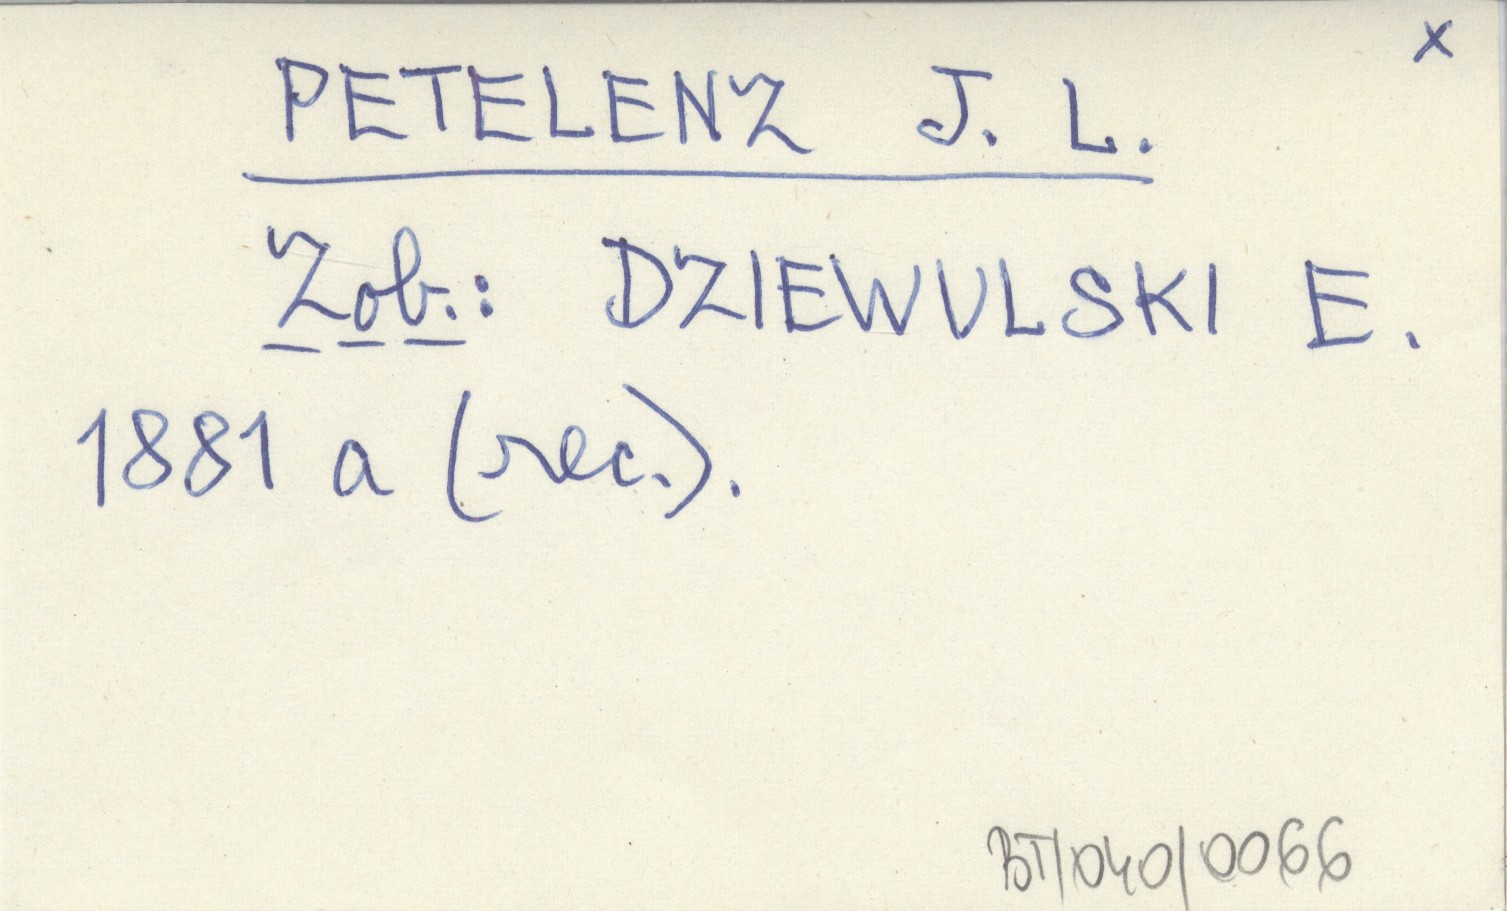 x
PETELENZ J. L.
Zob.: DZIEWULSKI E.
1881 a (rec.).
BT/040/0066